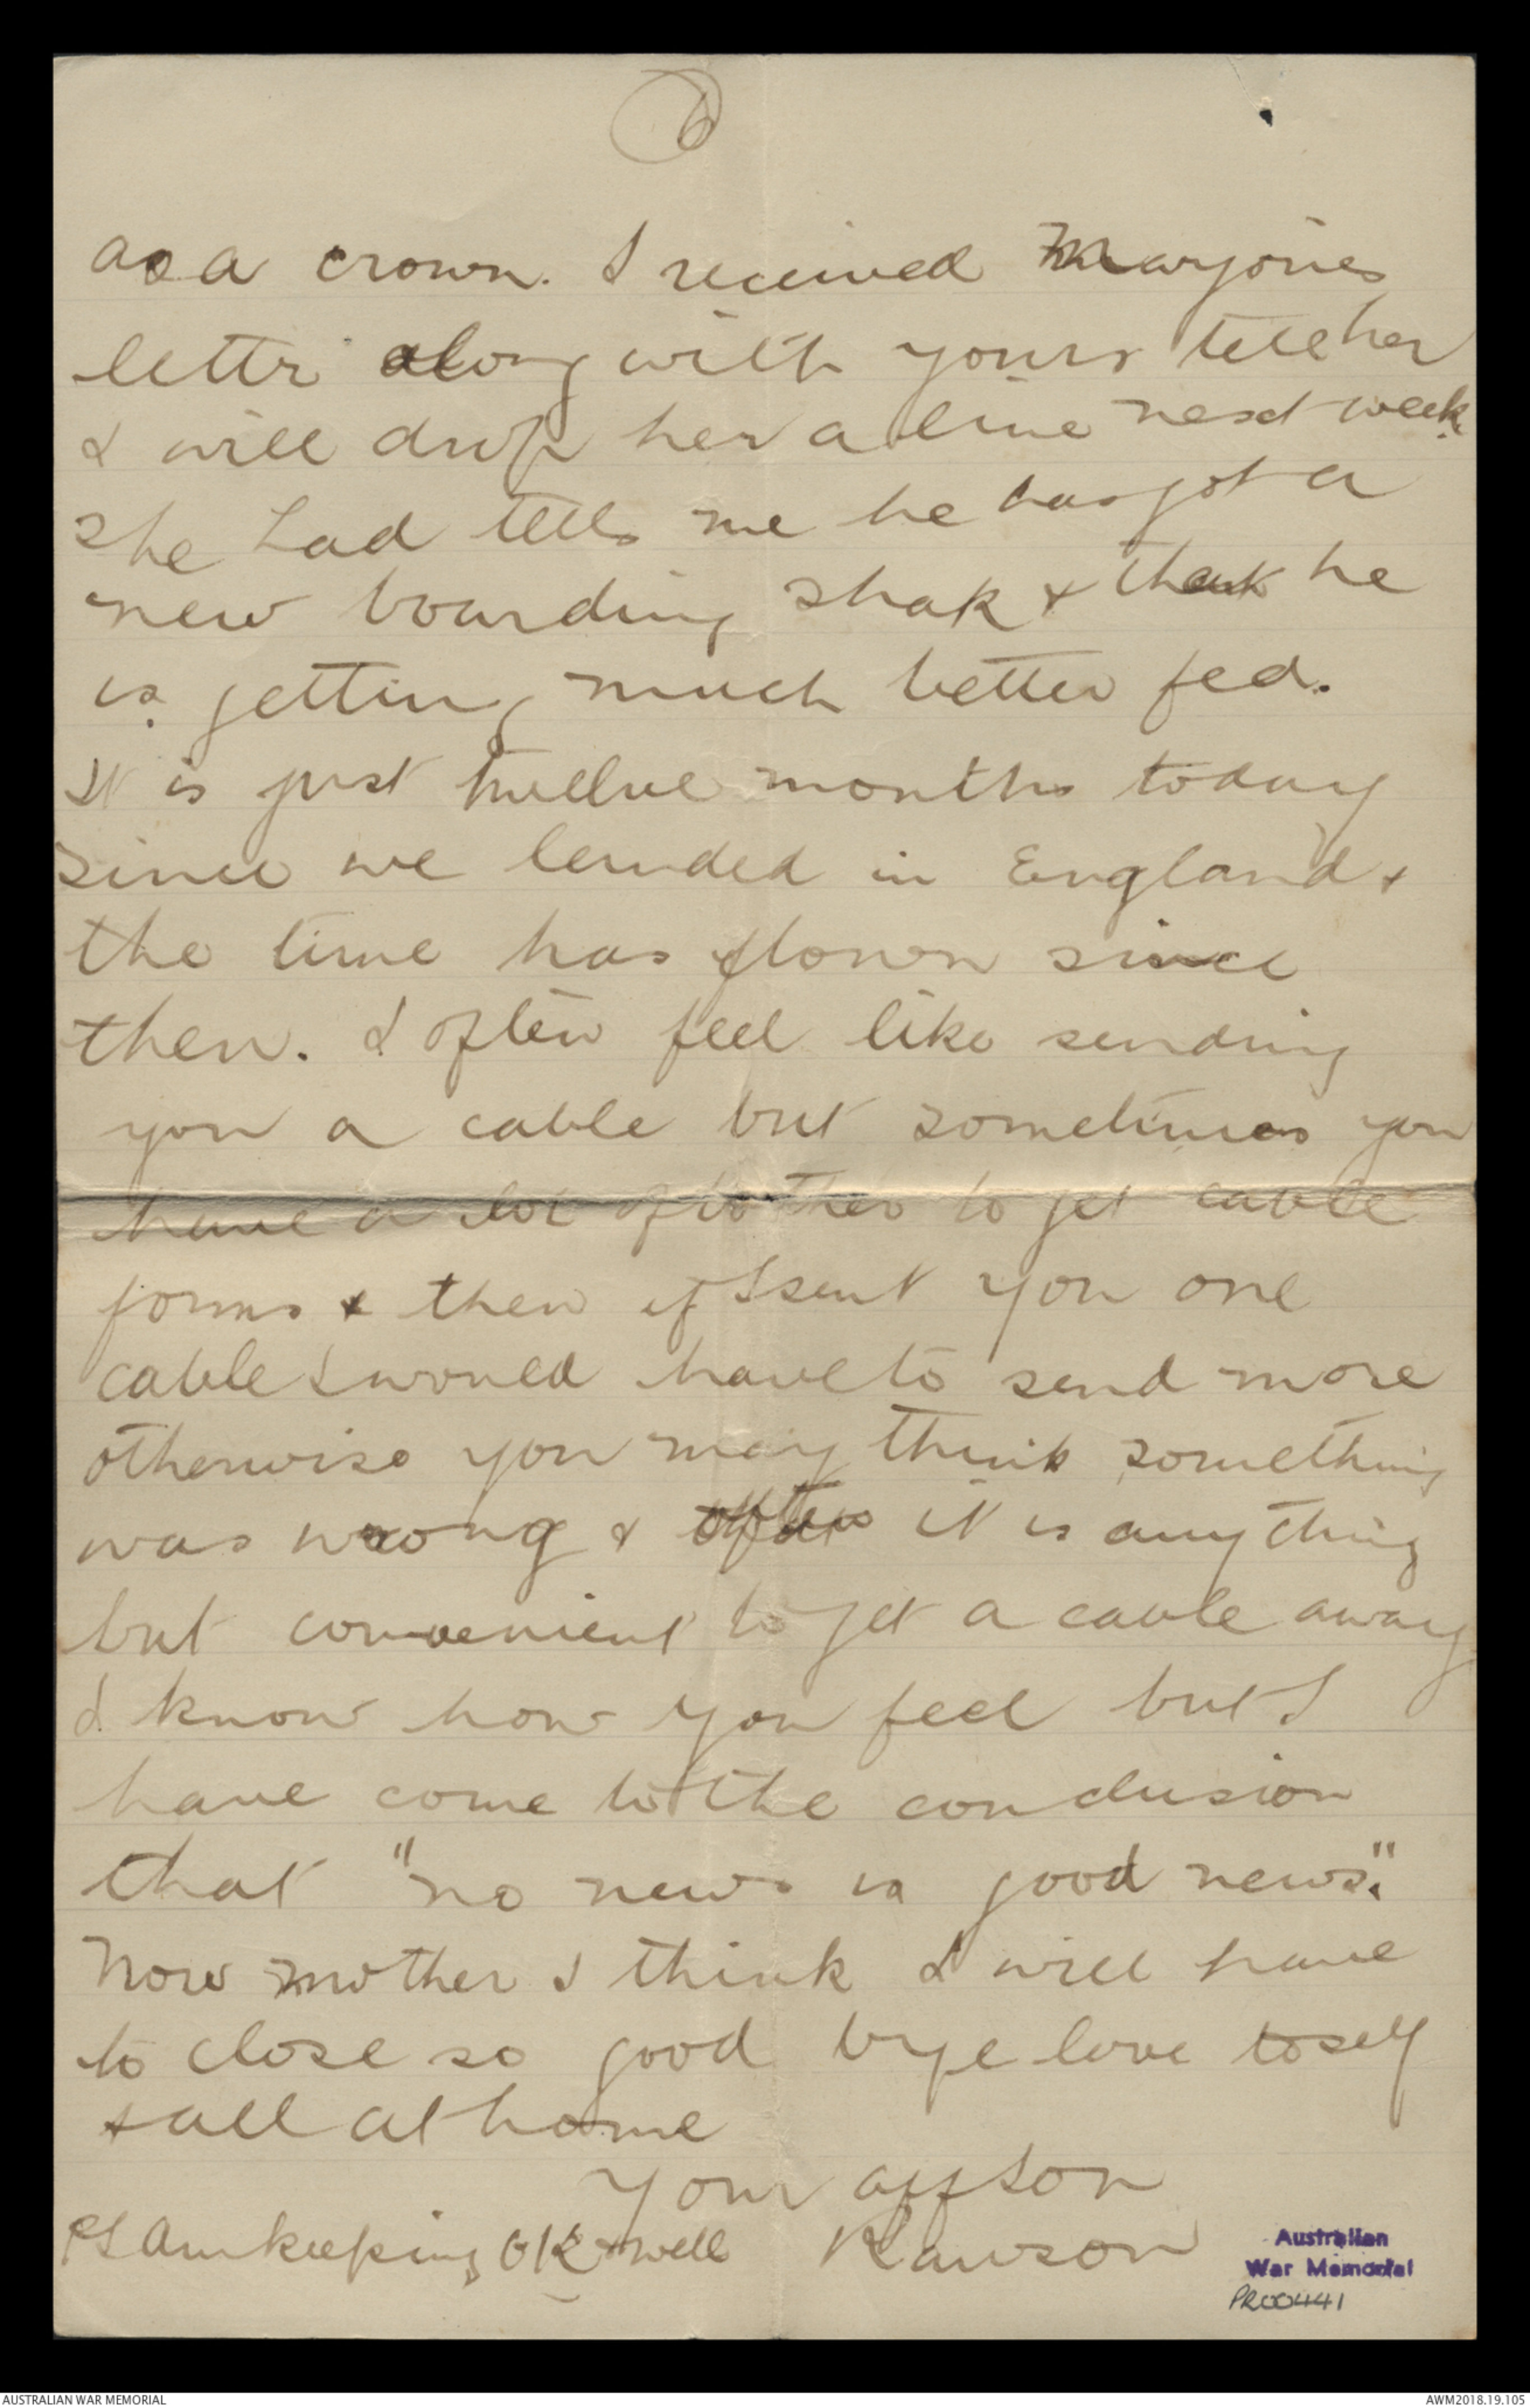 6
as a crown. I received Marjories
lettr along with yours tell her
I will drop her a line next week.
The Lad tells me he has got a
new boarding shak & that he
is getting much better fed.
It is just twelve months today
since we landed in England &
the time has flown since
then. I often feel like sending
you a cable but sometimes you
have a lot of bother to get cable
forms & then if I sent you one
cable I would have to send more
otherwise you may think something
was wrong & often it is anything
but convenient to get a cable away
I know how you feel but I
have come to the conclusion
that "no news is good news".
Now mother I think I will have
to close so good bye love to self
& all at home
Your aff son
PS Am keeping OK & well Rawson
Australian
War Memorial
PR00441
AUSTRALIAN WAR MEMORIAL AWM2018.19.105